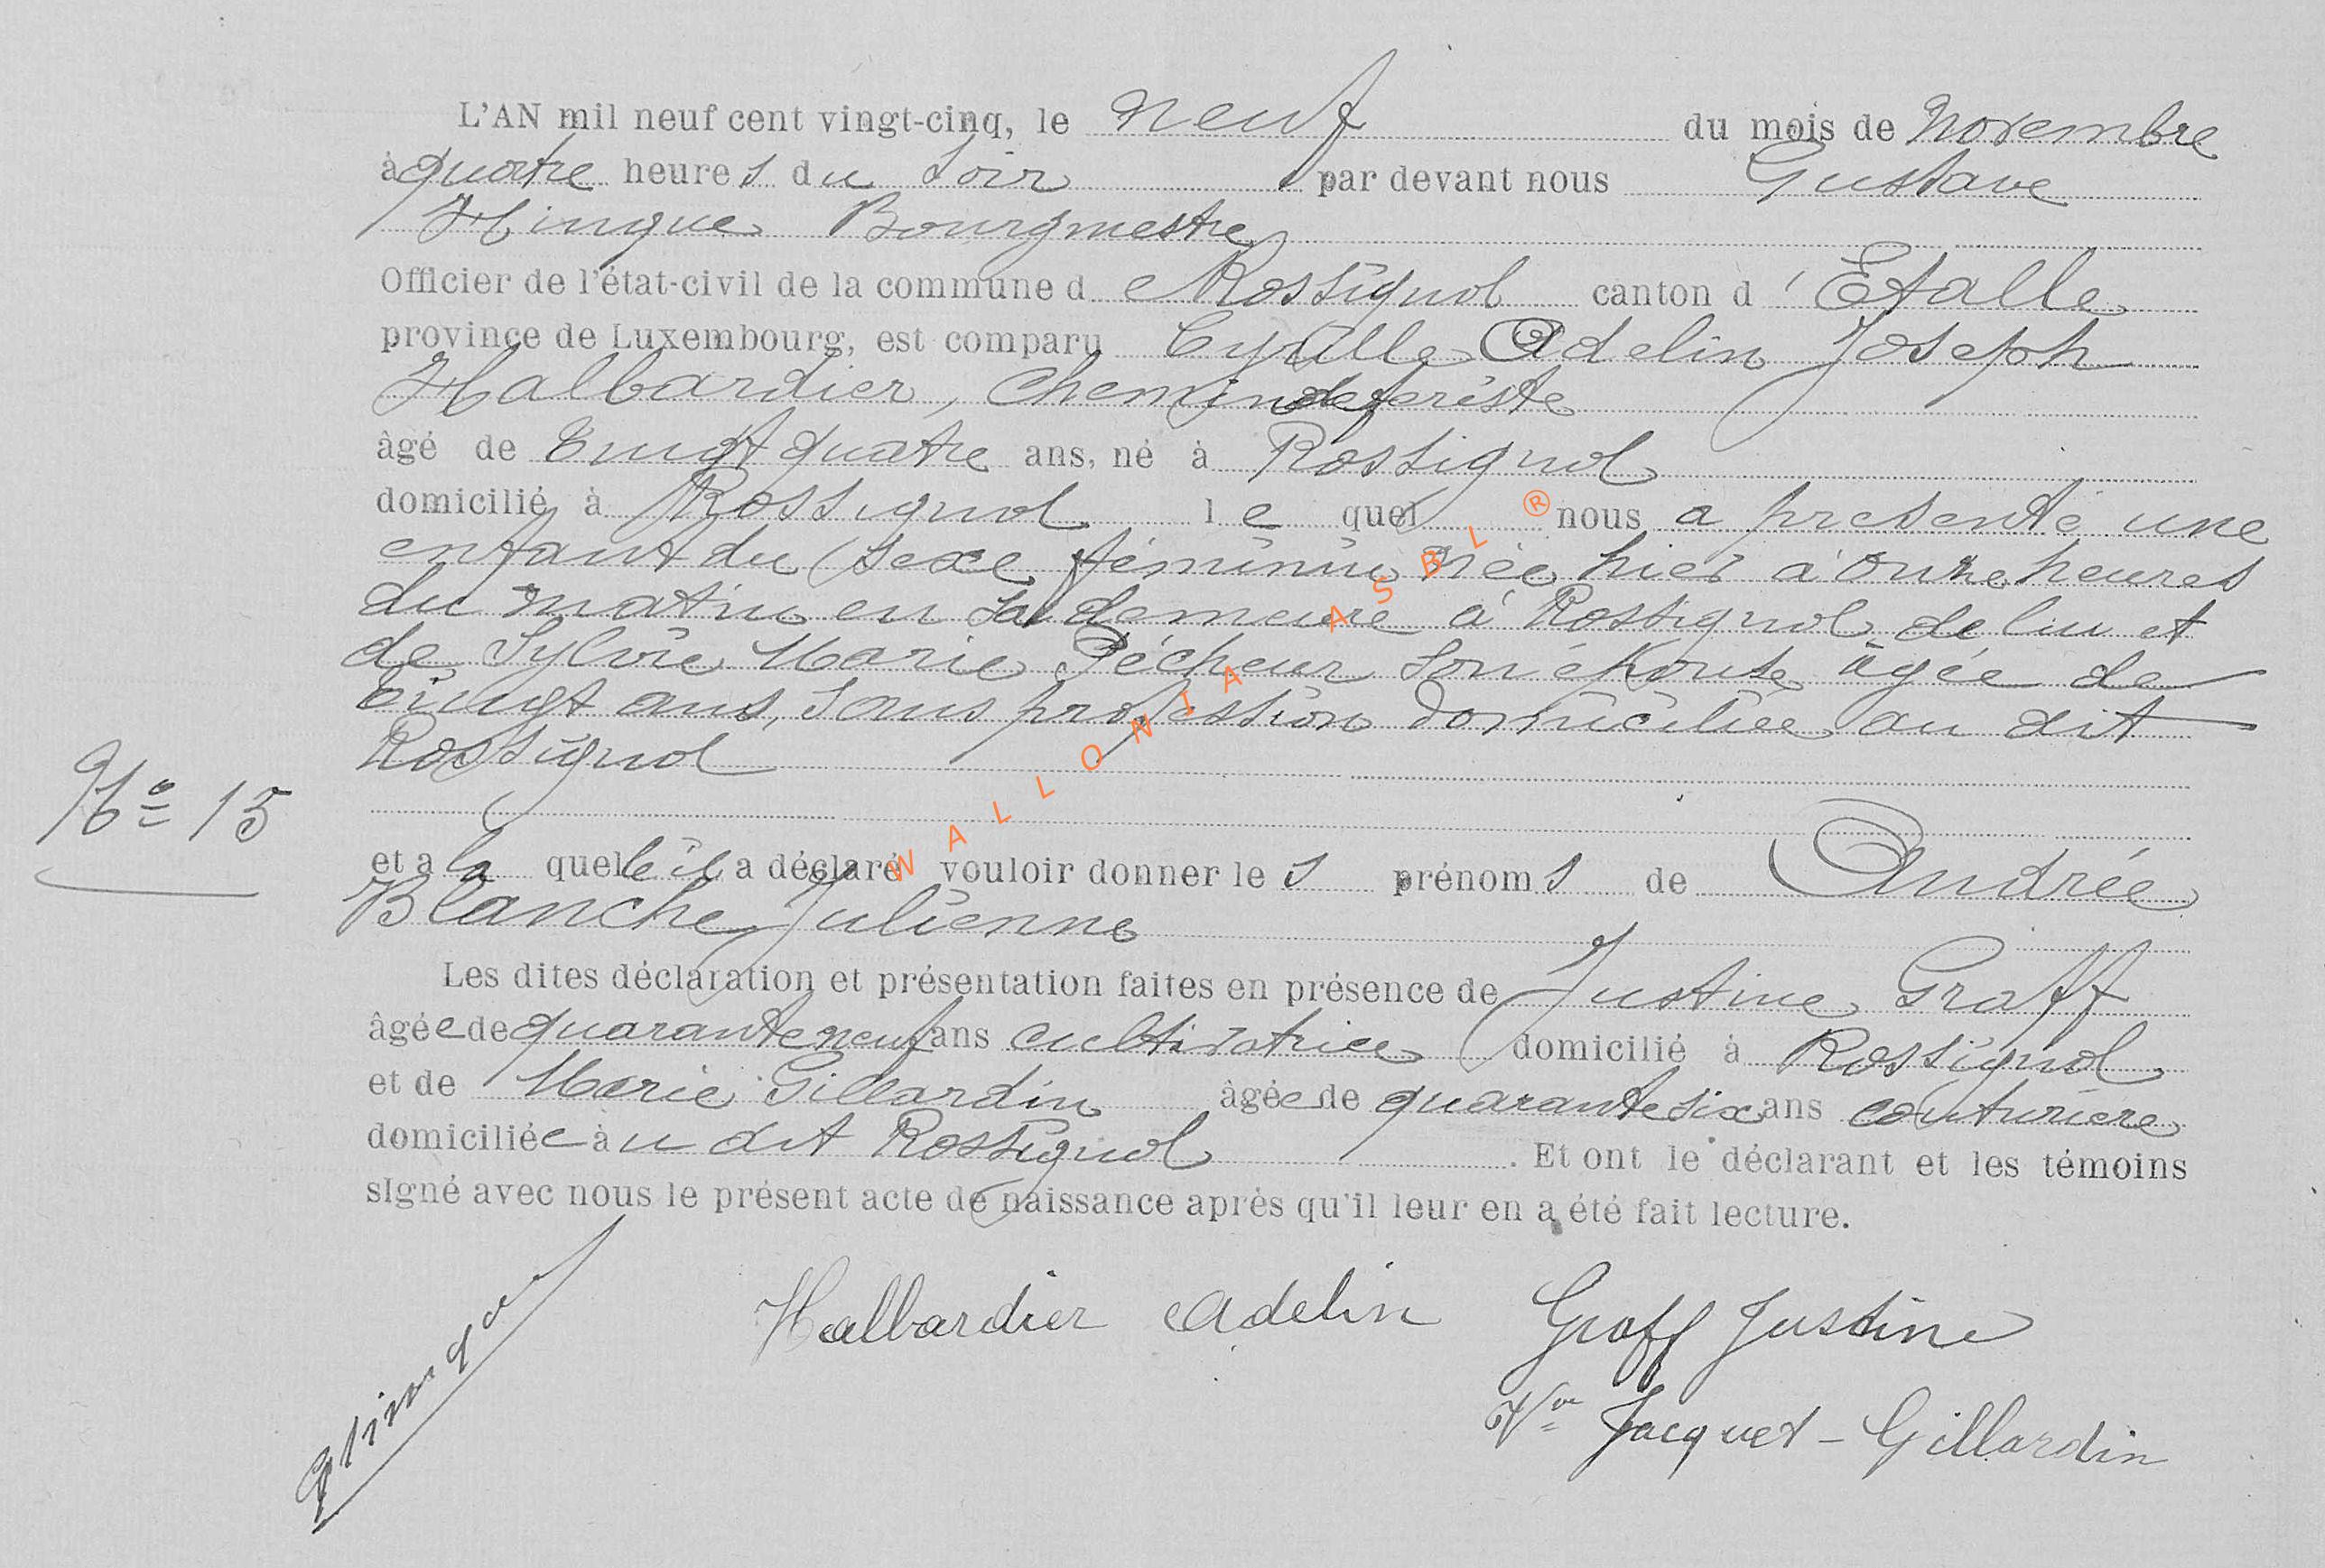 L'AN mil neuf cent vingt-cinq, le neuf du mois de Novembre
à quatre heures du soir par devant nous Gustave
Hinque Bourgmestre
Officier de l'état-civil de la commune de Rossignol canton d'Etalle
province de Luxembourg, est comparu Cyrille Adelin Joseph
Halbardier, chemindeferiste
âgé de vingt quatre ans, né à Rossignol
domicilié à Rossignol lequel nous a présenté une
enfant du sexe féminin née hier à onze heures
du matin en sa demeure à Rossignol de lui et
de Sylvie Marie Pécheur son épouse âgée de
vingt ans, sans profession domiciliée au dit
Rossignol
No 15
et a la quelle il a déclaré vouloir donner les prénoms de Andrée
Blanche Julienne
Les dites déclaration et présentation faites en présence de Justine Graff
âgée de quarante neuf ans cultivatrice domicilié à Rossignol
et de Marie Gillardin âgée de quarante six ans couturière
domiciliée au dit Rossignol. Et ont le déclarant et les témoins
signé avec nous le présent acte de naissance après qu'il leur en a été fait lecture.
Halbardier Adelin Graff Justine
Vve Jacquet - Gillardin
WALLONIA ASBL ®